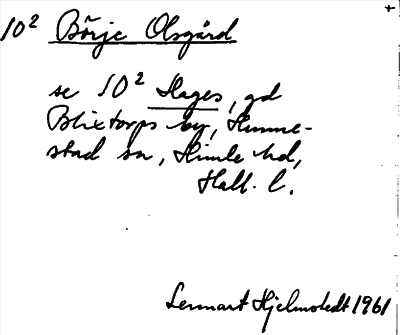 10² Börje Olsgård
se 10² Hages, gd
Blixtorps by, Humme-
stad sn, Himle hd,
Hall. l.
Lennart Hjelmstedt 1961